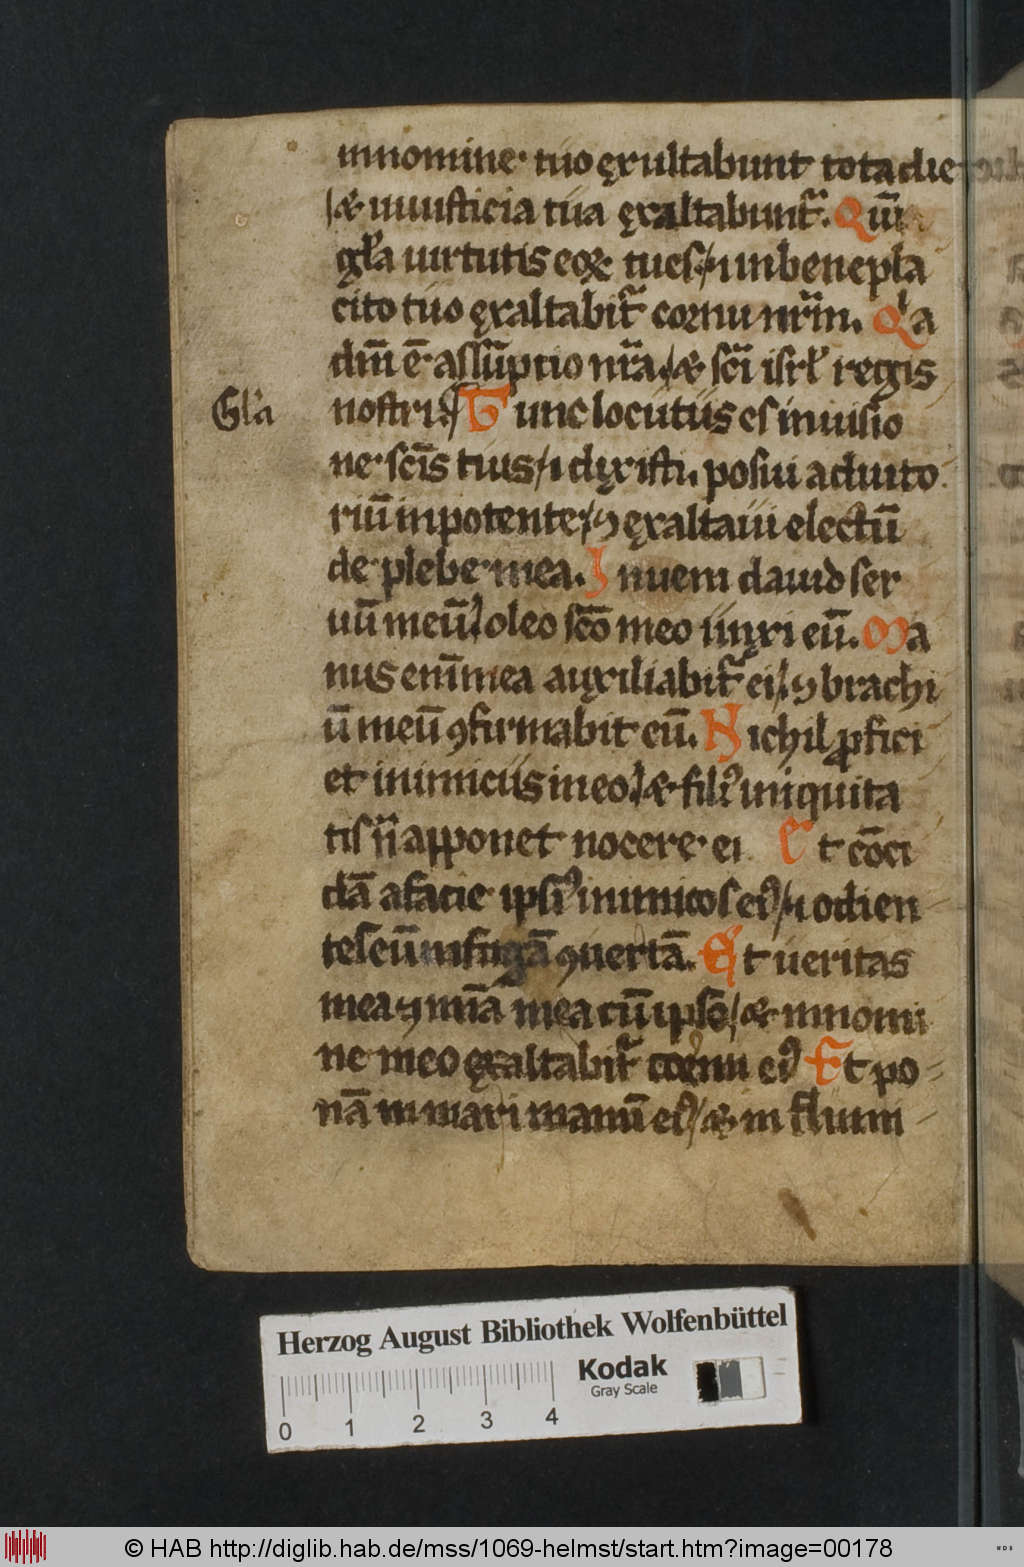 in nomine tuo exultabunt tota die
& in iusticia tua exaltabunt᷑. Qm̄
gl̓a uirtutis eoꝝ tu es / ⁊ in benepla
cito tuo exaltabit᷑ cornu nr̄m. Q̓a
dn̄i ē assūptio nr̄a / & sc̄i isrl̓ regis
Gl̓a
nostri. Tunc locutus es in uisio
ne sc̄is tuis / ⁊ dixisti posui adiuto
riū in potente / ⁊ exaltaui electū
de plebe mea. Inueni dauid ser
uū meū / oleo sc̄o meo unxi eū. Ma
nus eni᷒ mea auxiliabit᷑ ei / ⁊ brachi
ū meū ꝯfirmabit eū. Nichil ꝓfici
et inimicus in eo / & filiꝰ iniquita
tis n̄ apponet nocere ei Et cōci
dā a facie ipsiꝰ inimicos eiꝰ / ⁊ odien
tes eū in fugā ꝯuertā. Et ueritas
mea ⁊ mīa mea cū ipso / & in nomi
ne meo exaltabit᷑ cornu eiꝰ Et po
nā in mari manū eiꝰ / & in flumi
Herzog August Bibliothek Wolfenbüttel
Kodak
Gray Scale
0 1 2 3 4
© HAB http://diglib.hab.de/mss/1069-helmst/start.htm?image=00178